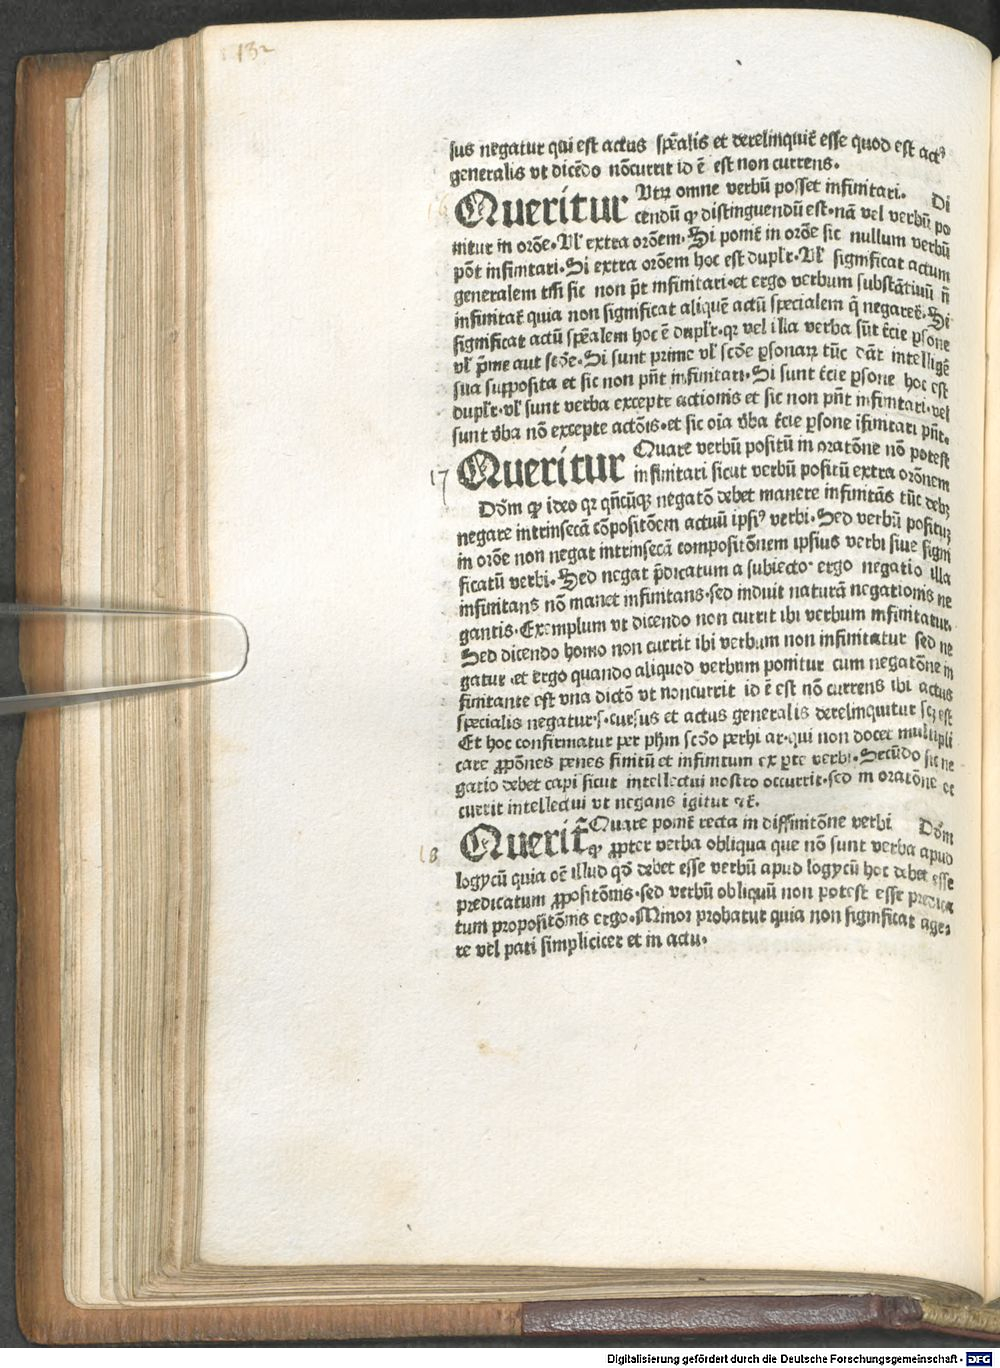 132
sus negatur qui est actus sp̄ealis et derelinquit̄ esse quod est actꝰ
generalis vt dicēdo nōcurrit id ē est non currens.
16
Queritur Vtrꝫ omne verbū posset infinitari. Di
cendū ꝙ distinguendū est. nā vel verbū po
nitur in orōe. Vl̄ extra orōem. Si ponit̄ in orōe sic nullum verbū
pōt infinitari. Si extra orōem hoc est duplr̄. Vl̄ significat actum
generalem tn̄ sic non pōt infinitari. et ergo verbum substātiuū nō
infinitat̄ quia non significat aliquē actū specialem q̄ negaret̄. Si
significat actū sp̄ealem hoc ē duplr̄. qꝛ vel illa verba sūt t̄cie ꝑsone
vl̄ p̄me aut scd̄e. Si sunt prime vl̄ scd̄e ꝑsonaꝝ tūc dāt intelligē
sua supposita et sic non pn̄t infinitari. Si sunt t̄cie ꝑsone hoc est
duplr̄. vl̄ sunt verba excepte actionis et sic non pn̄t infinitari. vel
sunt v̄ba nō excepte actōis. et sic oīa v̄ba t̄cie ꝑsone īfinitari pn̄t.
17
Queritur Quare verbū positū in oratōne nō potest
infinitari sicut verbū positū extra orōnem
Dōm ꝙ ideo qꝛ qn̄cūqꝫ negatō debet manere infinitās tūc debꝫ
negare intrinsecā cōpositōem actuū ipsiꝰ verbi. Sed verbū positum
in orōe non negat intrinsecā compositōnem ipsius verbi siue signi
ficatū verbi. Sed negat p̄dicatum a subiecto. ergo negatio illa
infinitans nō manet infinitans. sed induit naturā negationis ne
gantis. Exemplum vt dicendo non currit ibi verbum infinitatur.
Sed dicendo homo non currit ibi verbum non infinitatur sed ne
gatur. et ergo quando aliquod verbum ponitur cum negatōne in
finitante est vna dictō vt noncurrit id ē est nō currens ibi actus
specialis negatur. s. cursus et actus generalis derelinquitur scꝫ est
Et hoc confirmatur per ph̄m scd̄o perhi ar. qui non docet multipli
care ꝓpōnes penes finitū et infinitum ex ꝑte verbi. Secūdo sic ne
gatio debet capi sicut intellectui nostro occurrit. sed in oratōne oc
currit intellectui vt negans igitur ⁊c̄.
18
Querit̄ Quare ponit̄ recta in diffinitōne verbi Dōm
ꝙ ꝓpter verba obliqua que nō sunt verba apud
logycū quia oē illud qd̄ debet esse verbū apud logycū hoc debet esse
predicatum ꝓpositōnis. sed verbū obliquū non potest esse predica
tum propositōnis ergo. Minor probatur quia non significat age
re vel pati simpliciter et in actu.
Digitalisierung gefördert durch die Deutsche Forschungsgemeinschaft - DFG